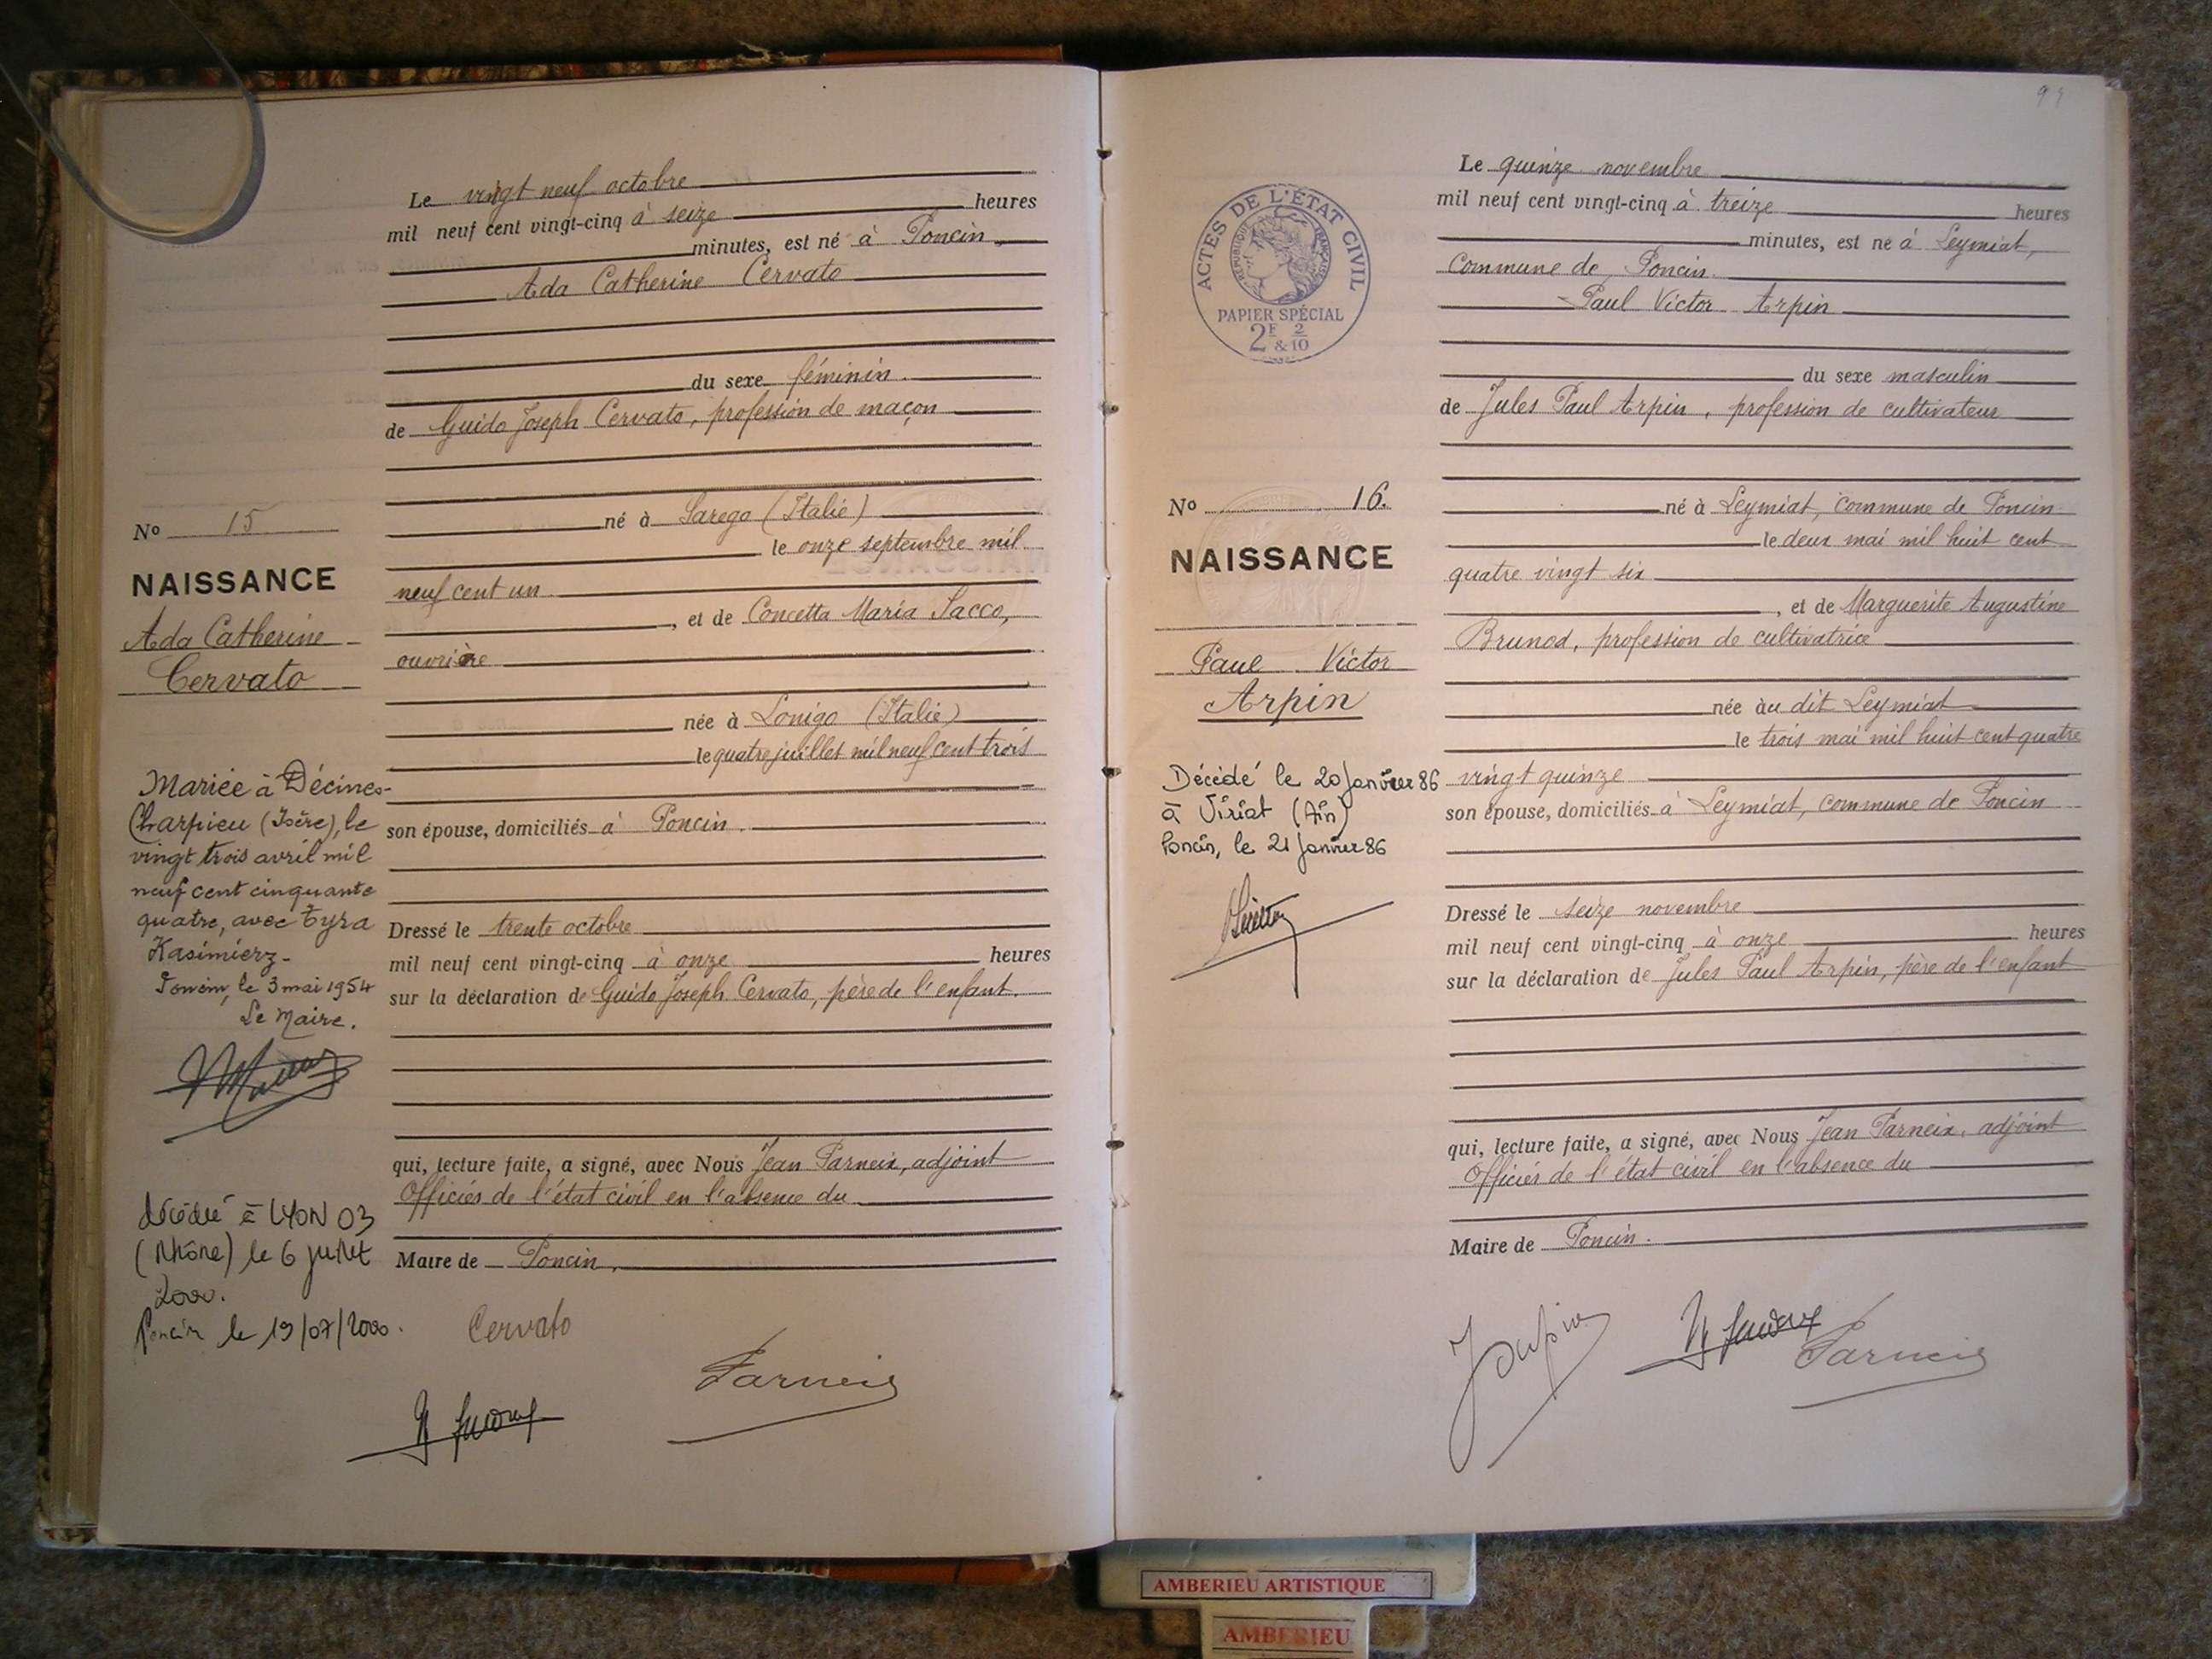 Le vingt neuf octobre
mil neuf cent vingt-cinq à seize heures
minutes, est né à Poncin
Ada Catherine Cervato
du sexe féminin.
de Guido Joseph Cervato, profession de maçon
né à Sarego (Italie)
le onze septembre mil
neuf cent un
, et de Concetta Maria Sacco,
ouvrière
née à Lonigo (Italie)
le quatre juillet mil neuf cent trois
son épouse, domiciliés à Poncin.
Dressé le trente octobre
mil neuf cent vingt-cinq à onze heures
sur la déclaration de Guido Joseph Cervato, père de l'enfant.
qui, lecture faite, a signé, avec Nous Jean Parneix, adjoint
Officier de l'état civil en l'absence du
Maire de Poncin.
Cervato
Parneix
No 15
NAISSANCE
Ada Catherine
Cervato
Mariée à Décines-
Charpieu (Isère), le
vingt trois avril mil
neuf cent cinquante
quatre, avec Tyra
Kasimierz-
Poncin, le 3 mai 1954
Le Maire.
décédée à LYON 03
(Rhône) le 6 juillet
2000.
Poncin le 19/07/2000.
Le quinze novembre
mil neuf cent vingt-cinq à treize heures
minutes, est né à Leymiat,
commune de Poncin.
Paul Victor Arpin
du sexe masculin
de Jules Paul Arpin, profession de cultivateur
né à Leymiat, commune de Poncin
le deux mai mil huit cent
quatre vingt six
, et de Marguerite Augustine
Brunod, profession de cultivatrice
née àu dit Leymiat
le trois mai mil huit cent quatre
vingt quinze
son épouse, domiciliés à Leymiat, commune de Poncin
Dressé le seize novembre
mil neuf cent vingt-cinq à onze heures
sur la déclaration de Jules Paul Arpin, père de l'enfant
qui, lecture faite, a signé, avec Nous Jean Parneix, adjoint
Officier de l'état civil en l'absence du
Maire de Poncin.
J Arpin
Parneix
ACTES DE L'ÉTAT CIVIL
RÉPUBLIQUE FRANÇAISE
PAPIER SPÉCIAL
2F & 2/10
No 16.
NAISSANCE
Paul Victor
Arpin
Décédé le 20 Janvier 86
à Viriat (Ain)
Poncin, le 21 Janvier 86
AMBERIEU ARTISTIQUE
AMBERIEU